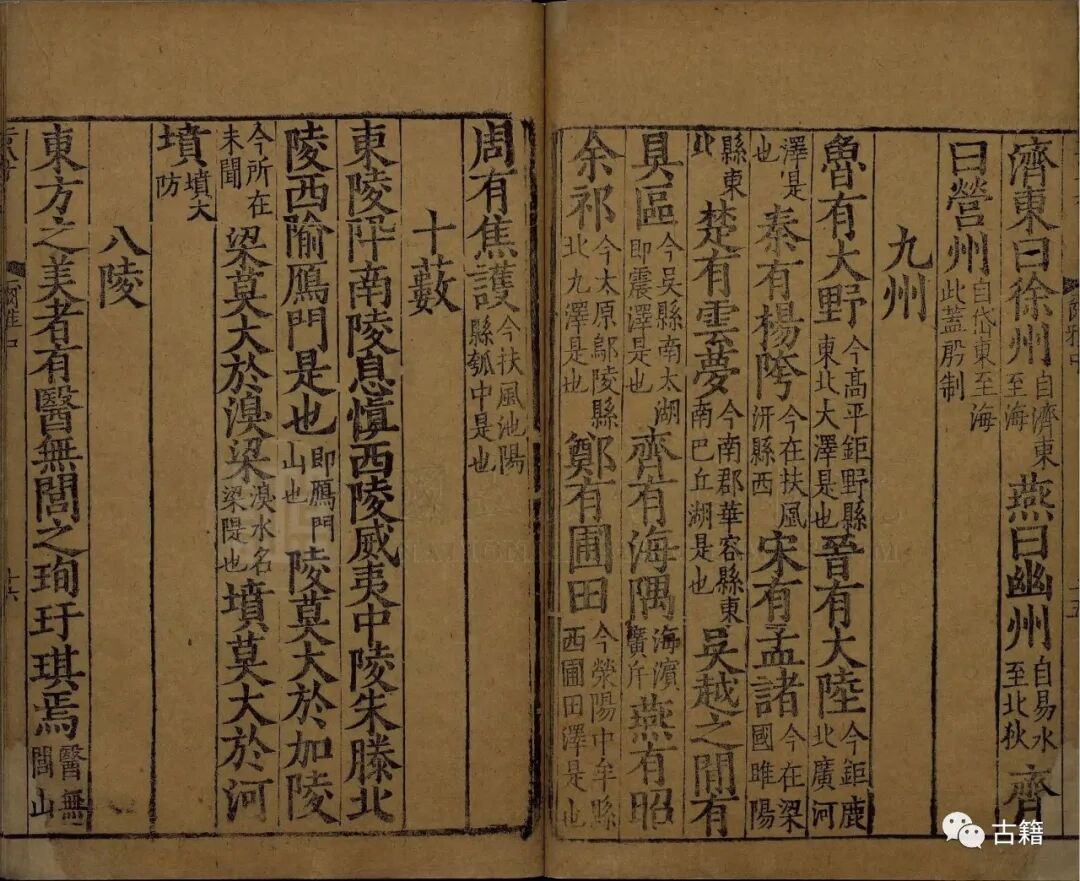 濟東曰徐州自濟東至海燕曰幽州自易水至北狄齊
曰營州自岱東至海此蓋殷制
九州
魯有大野今高平鉅野縣東北大澤是也晉有大陸今鉅鹿北廣河
澤是也秦有楊陓今在扶風汧縣西宋有孟諸今在梁國睢陽
縣東北楚有雲夢今南郡華容縣東南巴丘湖是也吳越之間有
具區今吳縣南太湖即震澤是也齊有海隅海濵廣斥燕有昭
余祁今太原鄔陵縣北九澤是也鄭有圃田今滎陽中牟縣西圃田澤是也
周有焦護今扶風池陽縣瓠中是也
十藪
東陵阠南陵息慎西陵威夷中陵朱滕北
陵西隃鴈門是也即鴈門山也陵莫大於加陵
今所在未聞梁莫大於湨梁湨水名梁隄也墳莫大於河
墳墳大防
八陵
東方之美者有醫無閭之珣玗琪焉醫無閭山
十六
古籍